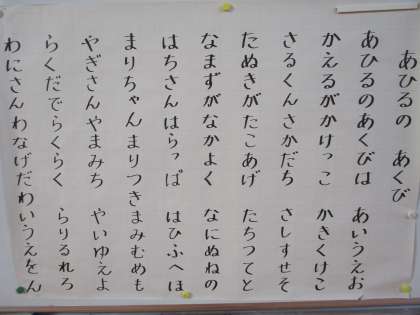 あひるの あくび
あひるのあくびは あいうえお
かえるがかけっこ かきくけこ
さるくんさかだち さしすせそ
たぬきがたこあげ たちつてと
なまずがなかよく なにぬねの
はちさんはらっぱ はひふへほ
まりちゃんまりつきまみむめも
やぎさんやまみち やいゆえよ
らくだでらくらく らりるれろ
わにさんわなげだわいうえをん